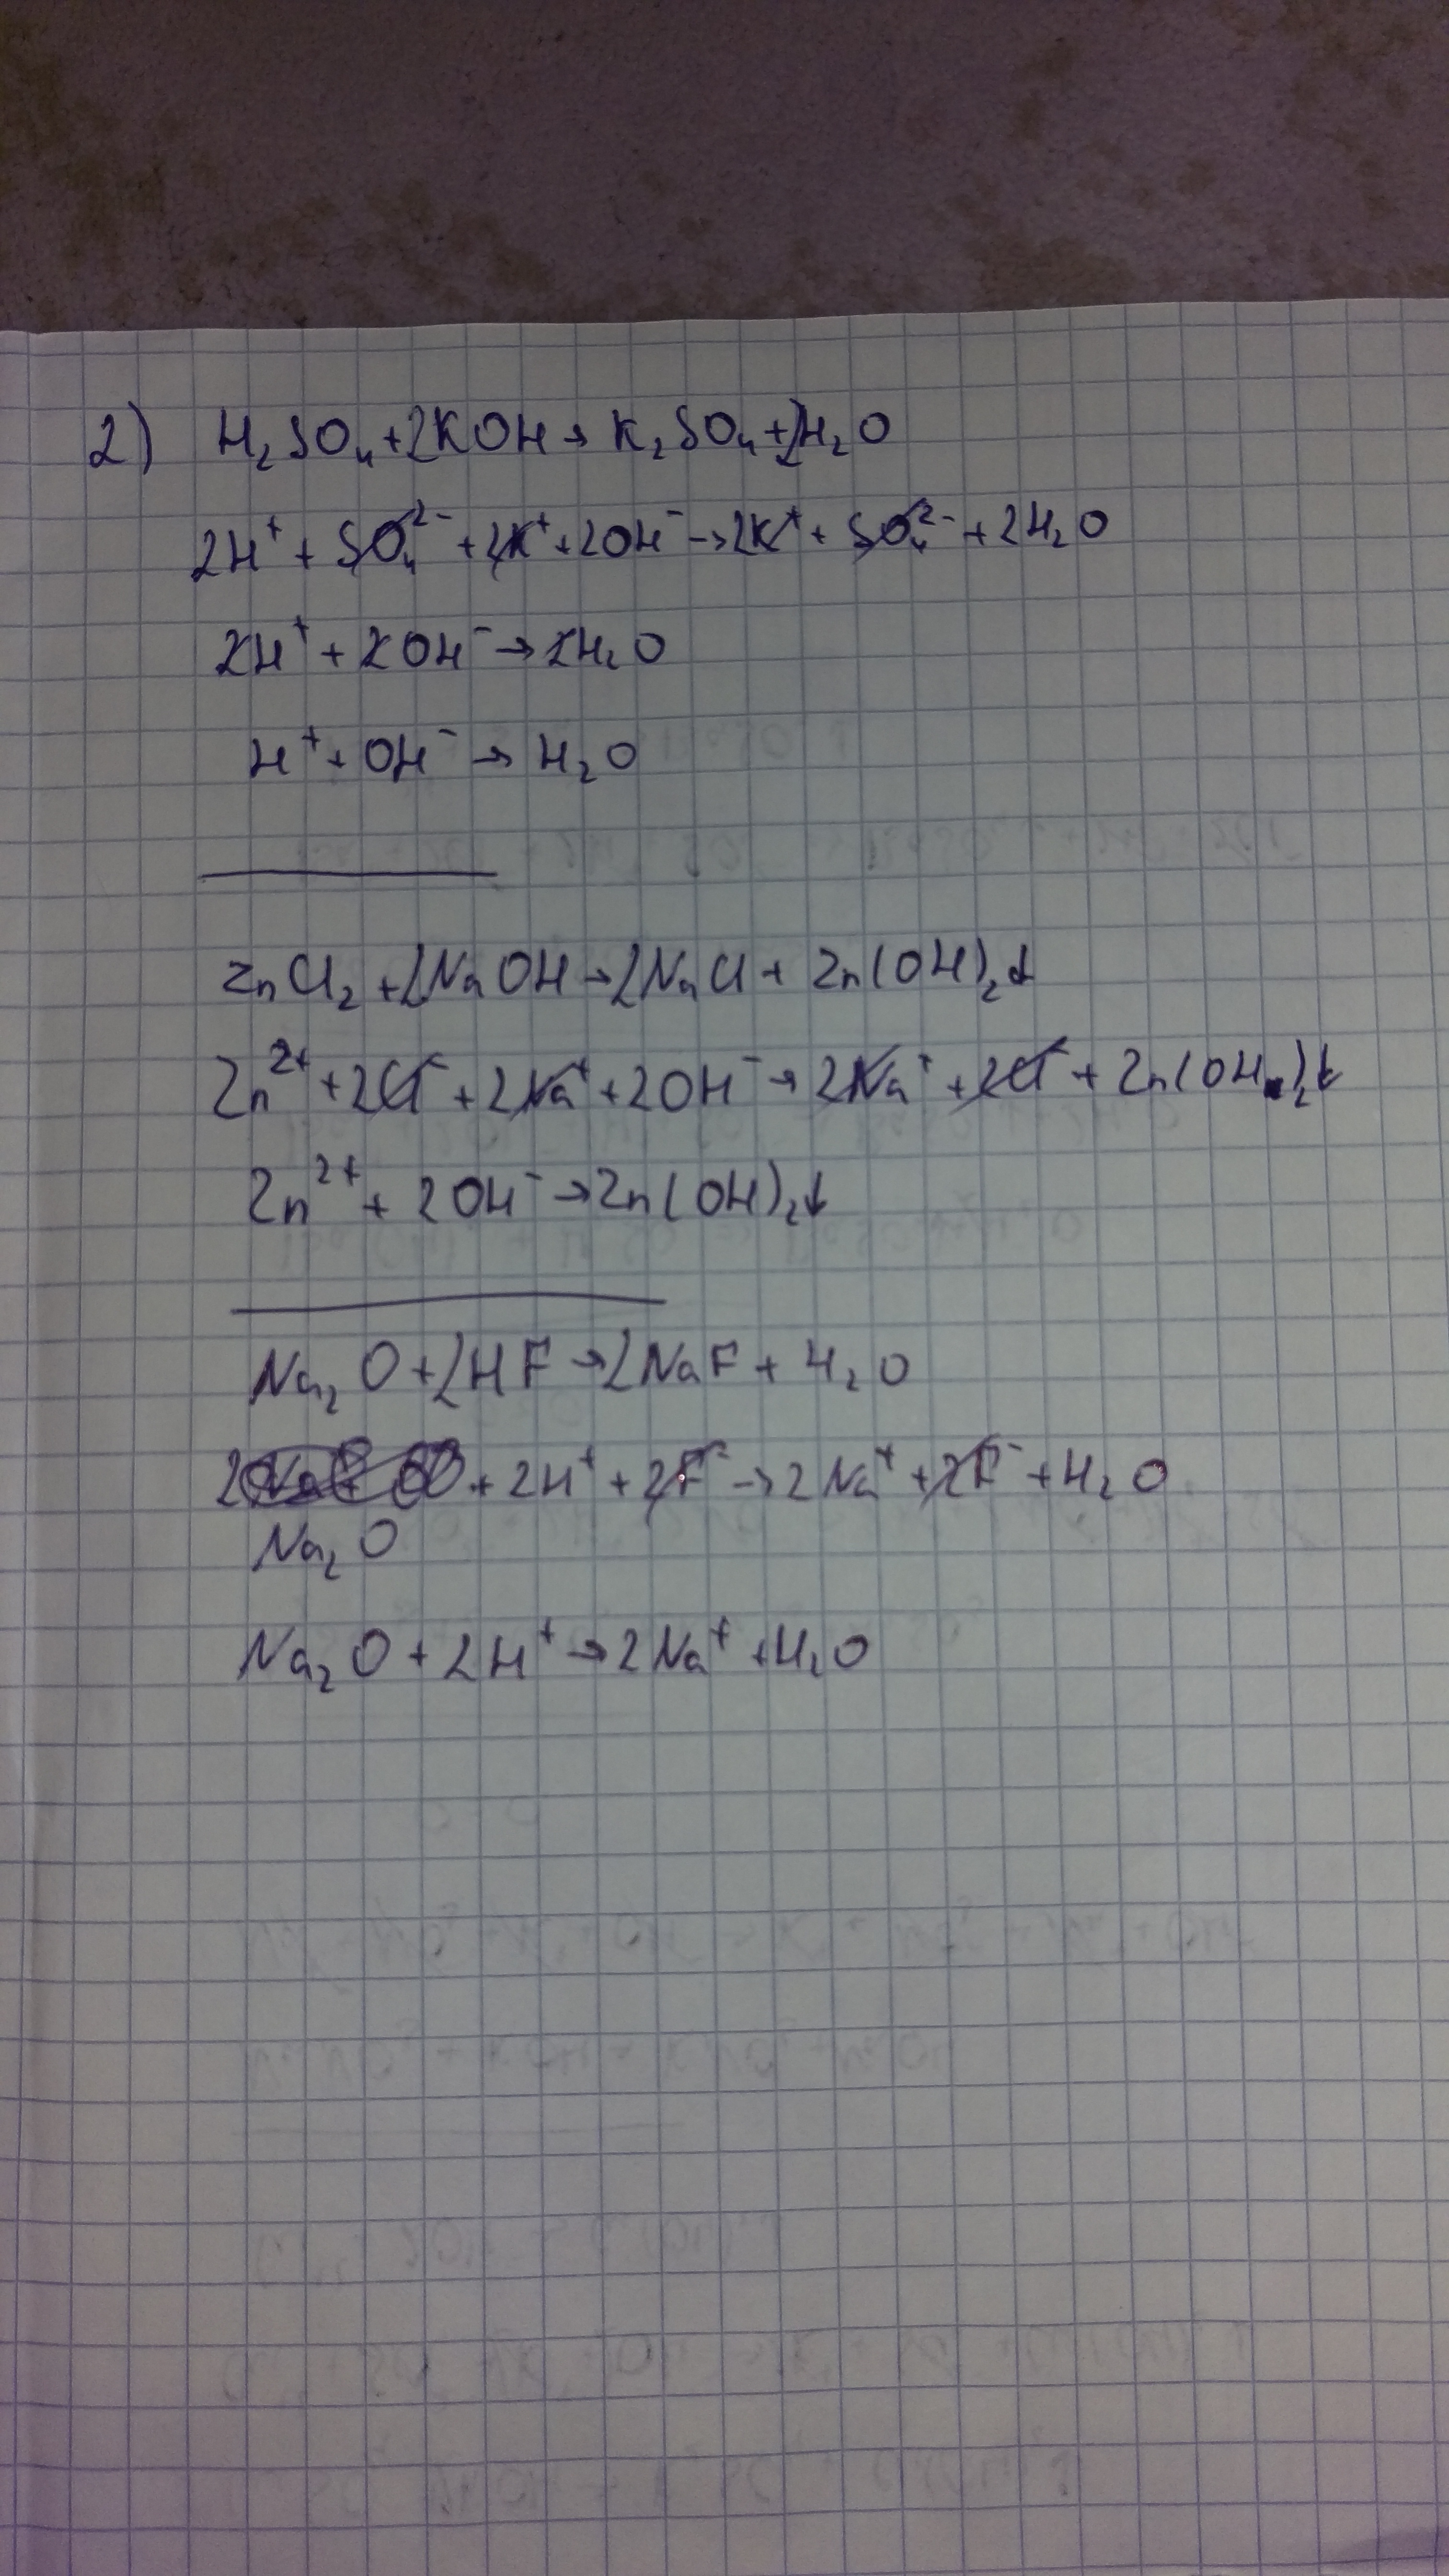 2) H₂SO₄+2KOH→K₂SO₄+2H₂O
2H⁺+SO₄²⁻+2K⁺+2OH⁻→2K⁺+SO₄²⁻+2H₂O
2H⁺+2OH⁻→2H₂O
H⁺+OH⁻→H₂O
ZnCl₂+2NaOH→2NaCl+Zn(OH)₂↓
Zn²⁺+2Cl⁻+2Na⁺+2OH⁻→2Na⁺+2Cl⁻+Zn(OH)₂↓
Zn²⁺+2OH⁻→Zn(OH)₂↓
Na₂O+2HF→2NaF+H₂O
2 +2H⁺+2F⁻→2Na⁺+2F⁻+H₂O
Na₂O
Na₂O+2H⁺→2Na⁺+H₂O